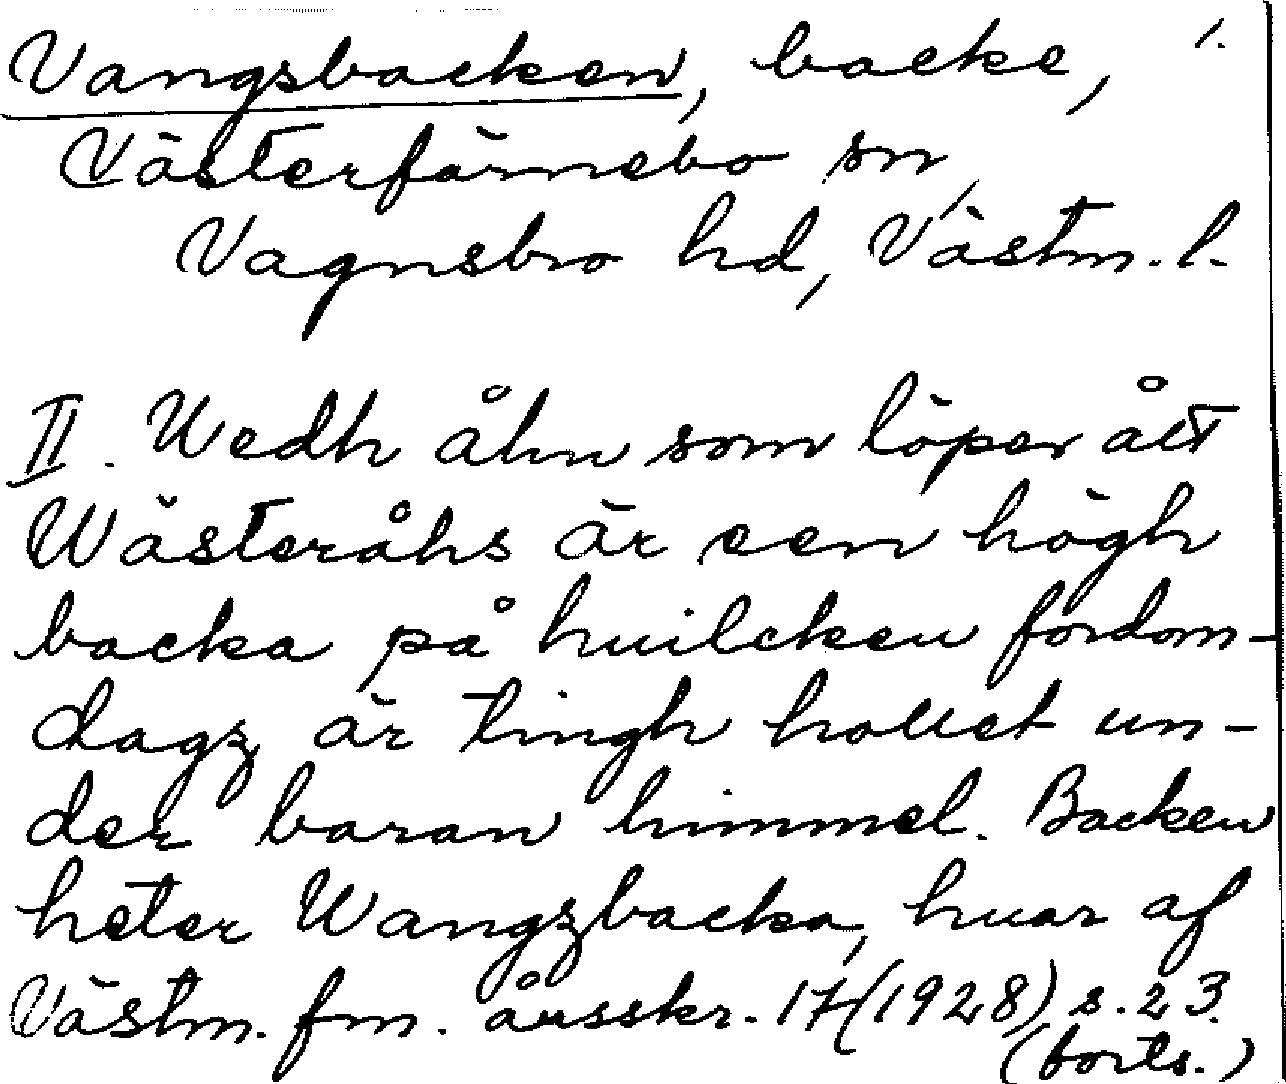 Vangsbacken, backe, 1.
Västerfärnebo sn,
Vagnsbro hd, Västm. l.
II. Wedh åhn som löper ått
Wästeråhs är een högh
backa på huilcken fordom-
dagz är tingh hållet un-
der baran himmel. Backen
heter Wangzbacka, huar af
Västm. fm. årsskr. 17 (1928) s. 23.
(forts.)